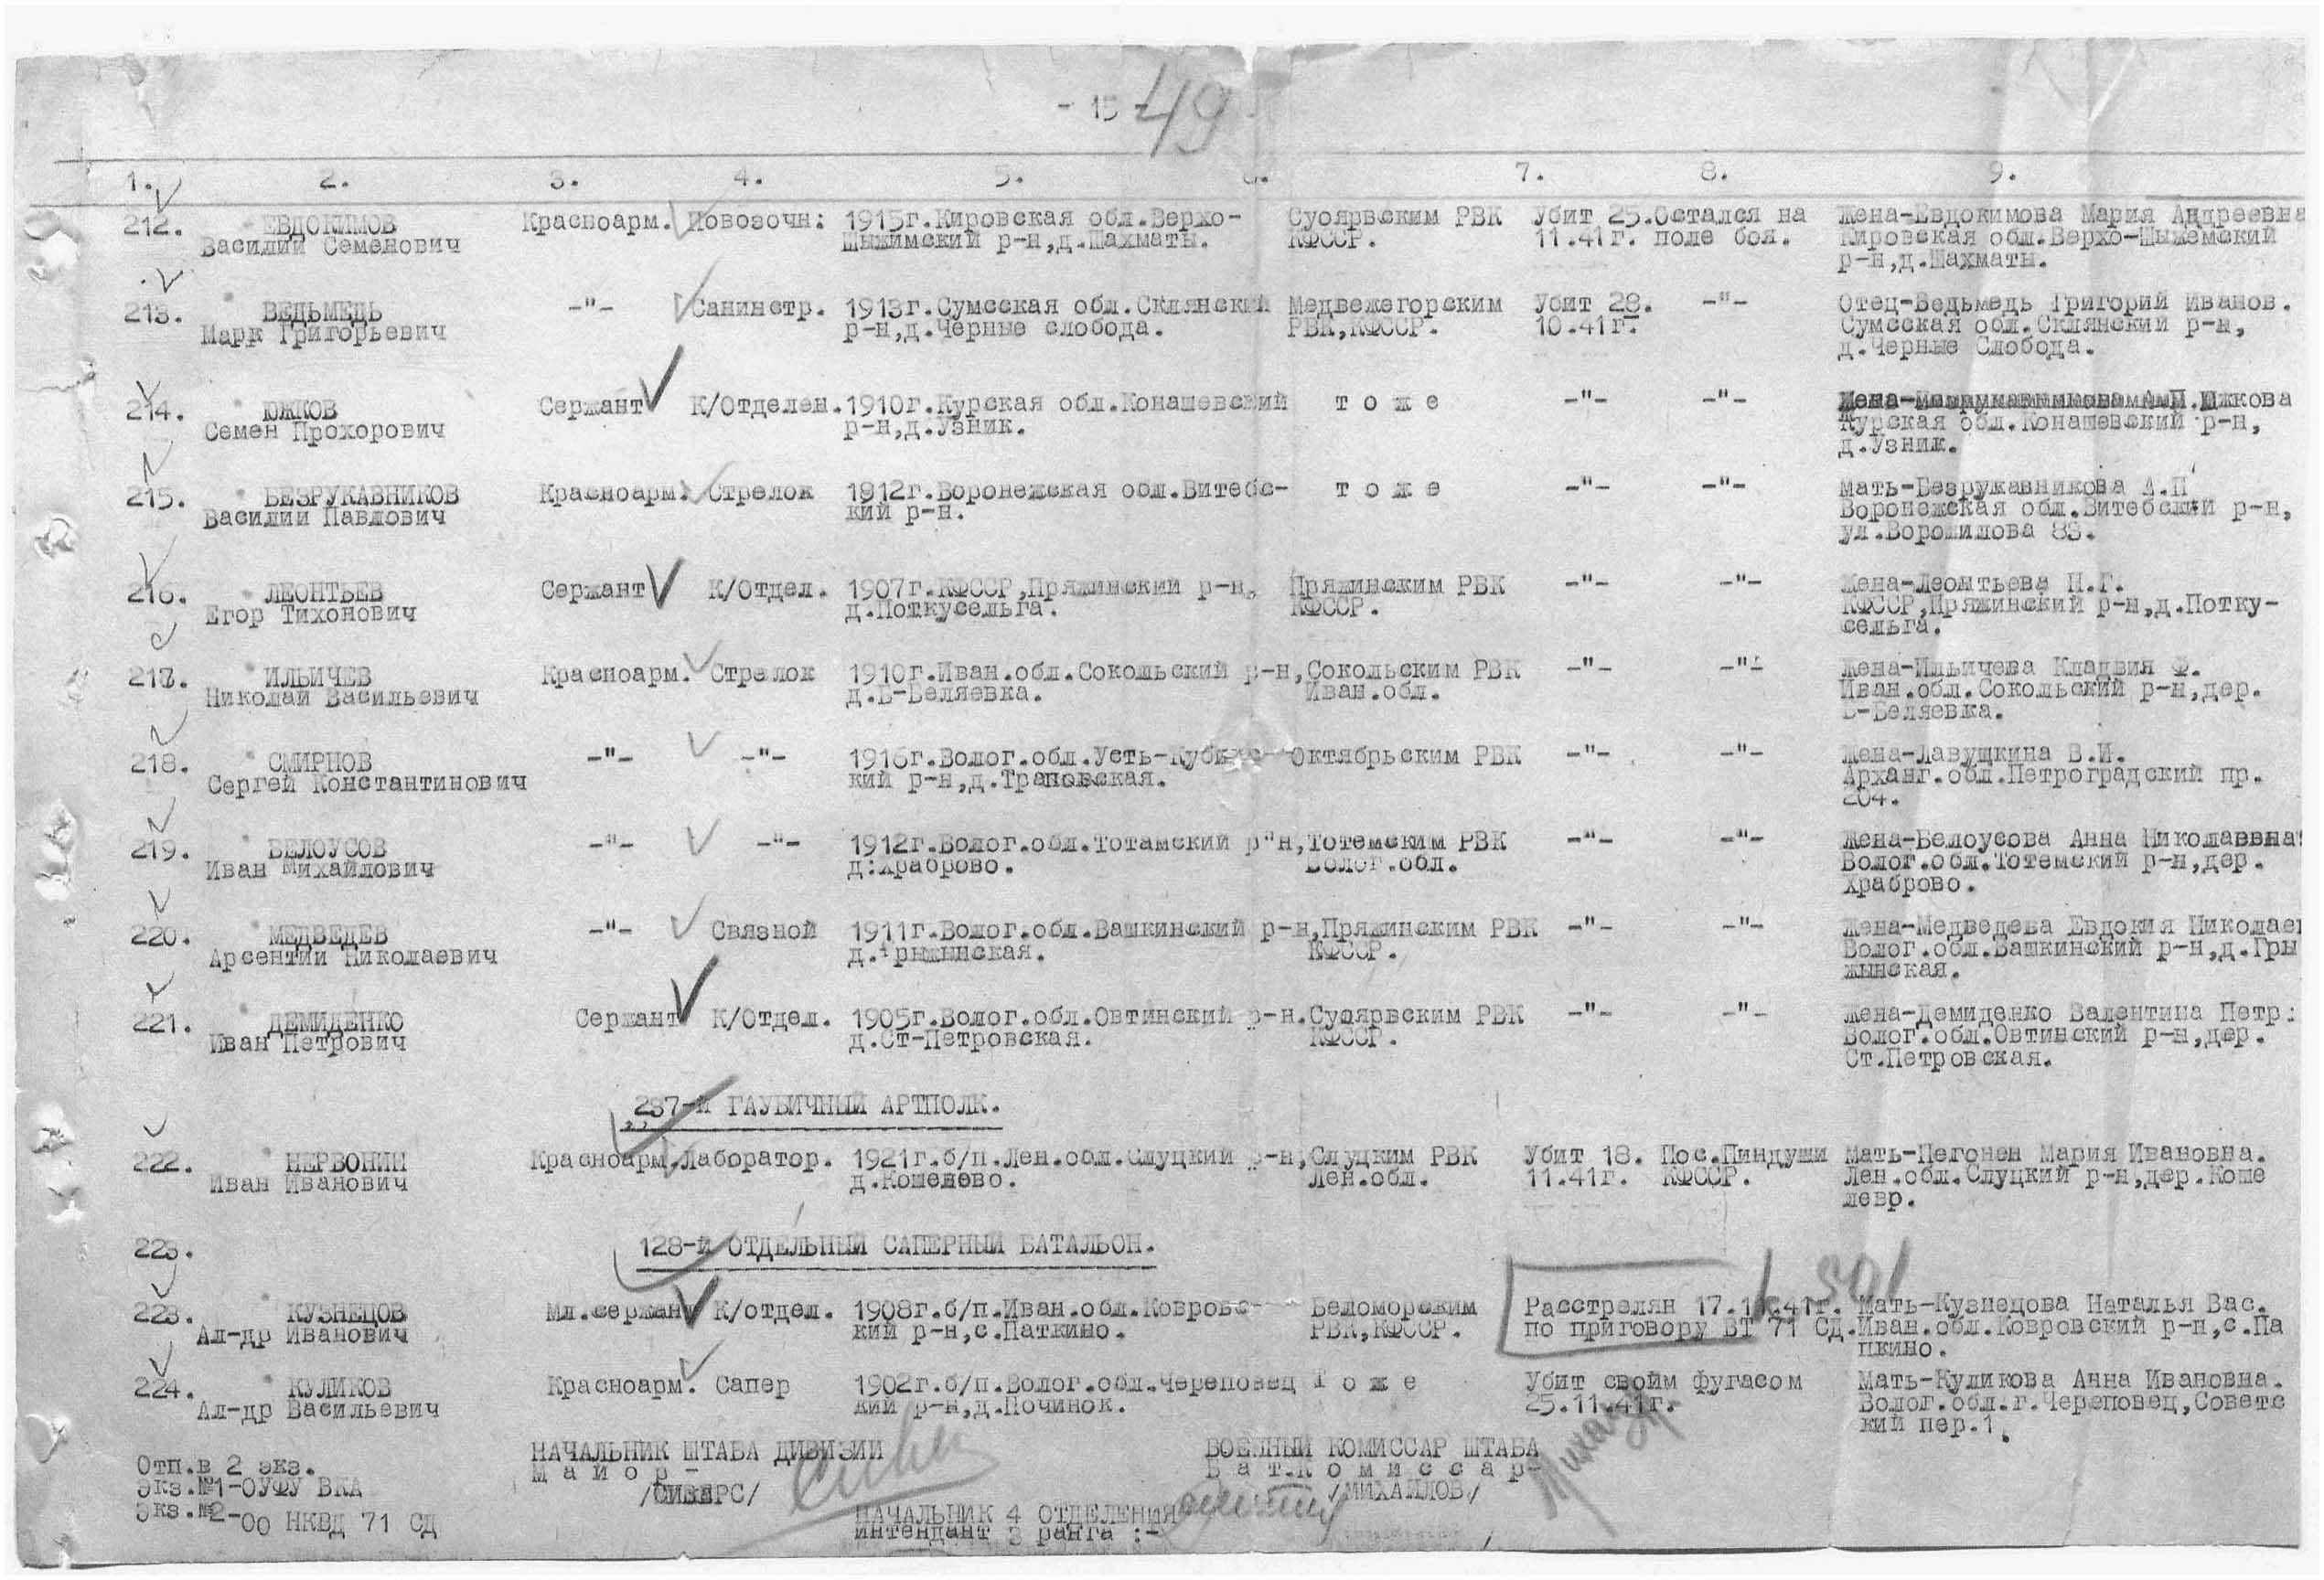 - 15 -
49
1. 2. 3. 4. 5. 6. 7. 8. 9.
212. ЕВДОКИМОВ Красноарм. Повозочн: 1915г.Кировская обл.Верхо- Суоярвским РВК Убит 25.Остался на Жена-Евдокимова Мария Андреевна
Василий Семенович Шыжимский р-н,д.Шахматы. КФССР. 11.41г. поле боя. Кировская обл.Верхо-Шыжемский
р-н,д.Шахматы.
213. ВЕДЬМЕДЬ -"- Санинстр. 1913г.Сумсская обл.Склянский Медвежегорским Убит 28. -"- Отец-Ведьмедь Григорий Иванов.
Марк Григорьевич р-н,д.Черные слобода. РВК,КФССР. 10.41г. Сумсская обл.Склянский р-н,
д.Черные Слобода.
214. ЮЖКОВ Сержант К/Отделен. 1910г.Курская обл.Конашевский т о ж е -"- -"- Южкова
Семен Прохорович р-н,д.Узник. Курская обл.Конашевский р-н,
д.Узник.
215. БЕЗРУКАВНИКОВ Красноарм. Стрелок 1912г.Воронежская обл.Витебс- т о ж е -"- -"- Мать-Безрукавникова А.П
Василий Павлович кий р-н. Воронежская обл.Витебский р-н,
ул.Ворошилова 83.
216. ЛЕОНТЬЕВ Сержант К/Отдел. 1907г.КФССР,Пряжинский р-н, Пряжинским РВК -"- -"- Жена-Леонтьева Н.Г.
Егор Тихонович д.Поткусельга. КФССР. КФССР,Пряжинский р-н,д.Потку-
сельга.
217. ИЛЬИЧЕВ Красноарм. Стрелок 1910г.Иван.обл.Сокольский р-н, Сокольским РВК -"- -"- Жена-Ильичева Кладвия Ф.
Николай Васильевич д.Б-Беляевка. Иван.обл. Иван.обл.Сокольский р-н,дер.
Б-Беляевка.
218. СМИРНОВ -"- -"- 1916г.Волог.обл.Усть-Кубинс- Октябрьским РВК -"- -"- Жена-Лавушкина В.И.
Сергей Константинович кий р-н,д.Траповская. Арханг.обл.Петроградский пр.
204.
219. БЕЛОУСОВ -"- -"- 1912г.Волог.обл.Тотамский р"н, Тотемским РВК -"- -"- Жена-Белоусова Анна Николаевна
Иван Михайлович д:Храброво. Волог.обл. Волог.обл.Тотемский р-н,дер.
Храброво.
220. МЕДВЕДЕВ -"- Связной 1911г.Волог.обл.Вашкинский р-н, Пряжинским РВК -"- -"- Жена-Медведева Евдокия Николае
Арсентий Николаевич д.Грыжынская. КФССР. Волог.обл.Вашкинский р-н,д.Гры
жынская.
221. ДЕМИДЕНКО Сержант К/Отдел. 1905г.Волог.обл.Овтинский р-н. Суоярвским РВК -"- -"- Жена-Демиденко Валентина Петр:
Иван Петрович д.Ст-Петровская. КФССР. Волог.обл.Овтинский р-н,дер.
Ст.Петровская.
237-й ГАУБИЧНЫЙ АРТПОЛК.
222. НЕРВОНИН Красноарм. Лаборатор. 1921г.б/п.Лен.обл.Слуцкий р-н, Слуцким РВК Убит 18. Пос.Пиндуши Мать-Пегонен Мария Ивановна.
Иван Иванович д.Кошелево. Лен.обл. 11.41г. КФССР. Лен.обл.Слуцкий р-н,дер.Коше
левр.
223. 128-й ОТДЕЛЬНЫЙ САПЕРНЫЙ БАТАЛЬОН.
223. КУЗНЕЦОВ Мл.сержант К/отдел. 1908г.б/п.Иван.обл.Ковровс- Беломорским Расстрелян 17.11.41г. Мать-Кузнецова Наталья Вас.
Ал-др Иванович кий р-н,с.Паткино. РВК,КФССР. по приговору ВТ 71 СД. Иван.обл.Ковровский р-н,с.Па
пкино.
224. КУЛИКОВ Красноарм. Сапер 1902г.б/п.Волог.обл.Череповец Т о ж е Убит своим фугасом Мать-Куликова Анна Ивановна.
Ал-др Васильевич кий р-н,д.Починок. 25.11.41г. Волог.обл.г.Череповец,Советс
кий пер.1.
НАЧАЛЬНИК ШТАБА ДИВИЗИИ ВОЕННЫЙ КОМИССАР ШТАБА
Отп.в 2 экз. М а й о р - Б а т.К о м и с с а р-
Экз.№1-ОУФУ ВКА /СИВЕРС/ /МИХАЙЛОВ/
Экз.№2-ОО НКВД 71 СД НАЧАЛЬНИК 4 ОТДЕЛЕНИЯ
интендант 3 ранга :-